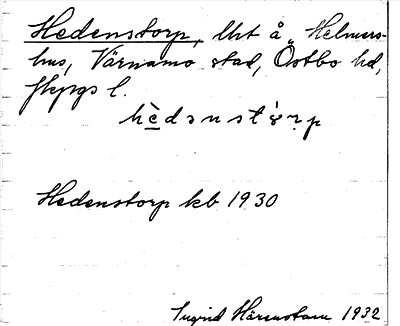 Hedenstorp, lht å Helmers-
hus, Värnamo stad, Östbo hd,
Jkpgs l.
hèdənstórp
Hedenstorp kb 1930
Ingrid Härenstam 1932